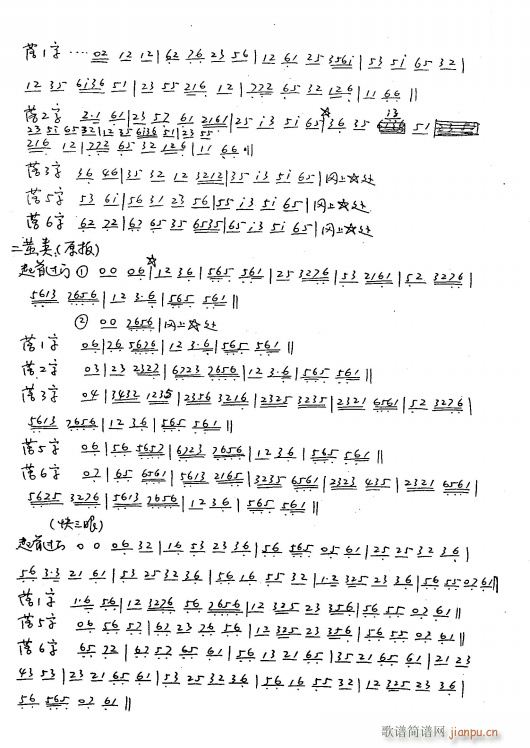 落1字 ···· 02 12 12 | 62 76 23 56 | 12 61 25 3561 | 53 5i 65 32 |
12 35 6i36 51 | 23 55 216 12 | 7772 65 32 126 | 11 66 ||
落2字 2·1 61 | 23 57 61 2161 | 25 i3 5i 65 | 36 35 51
23 5i 65 32 | 12 35 6i36 51 | 23 55
216 12 | 7772 65 32 126 | 11 66 ||
落3字 36 46 | 35 32 12 3212 | 35 i3 5i 65 | 同上☆处
落5字 53 61 | 56 31 23 56 | 55 i3 5i 65 | 同上☆处
落6字 62 72 | 62 65 35 6535 | 65 i3 5i 65 | 同上☆处
二黄类(原板)
起首过门 ① 00 06 | 12 36 | 565 561 | 25 3276 | 53 2161 | 52 3276 |
5613 7656 | 12 3·6 | 565 561 ||
② 00 7656 | 同上☆处
落1字 06 | 76 5676 | 12 3·6 | 565 561 ||
落2字 03 | 23 2327 | 6723 7656 | 12 3·6 | 565 561 ||
落3字 04 | 3432 1235 | 2356 3216 | 2325 3235 | 2321 6561 | 52 3276 |
5613 7656 | 12 36 | 565 561 ||
落5字 06 | 56 5657 | 6723 7656 | 12 36 | 565 561 ||
落6字 07 | 65 6561 | 5613 2165 | 3235 6561 | 2323 435 | 2321 6561 |
5625 3276 | 5613 7656 | 12 36 | 565 561 ||
(快三眼)
起首过门 0 0 06 32 | 16 53 23 36 | 56 565 05 61 | 25 25 32 36 |
56 3·3 21 61 | 53 25 32 36 | 56 16 55 32 | 12 325 23 36 | 56 55 07 61 ||
落1字 1·6 56 | 12 3276 56 7656 | 12 325 23 356 | 56 55 07 61 ||
落5字 06 56 57 | 67 23 76 56 | 12 325 23 356 | 56 55 07 61 ||
落6字 65 72 | 67 57 65 61 | 56 13 21 65 | 35 21 65 61 | 21 23
43 53 | 23 21 65 61 | 53 25 32 36 | 56 16 55 32 | 12 325 23 36 |
56 565 07 61 ||
歌谱简谱网
jianpu.cn